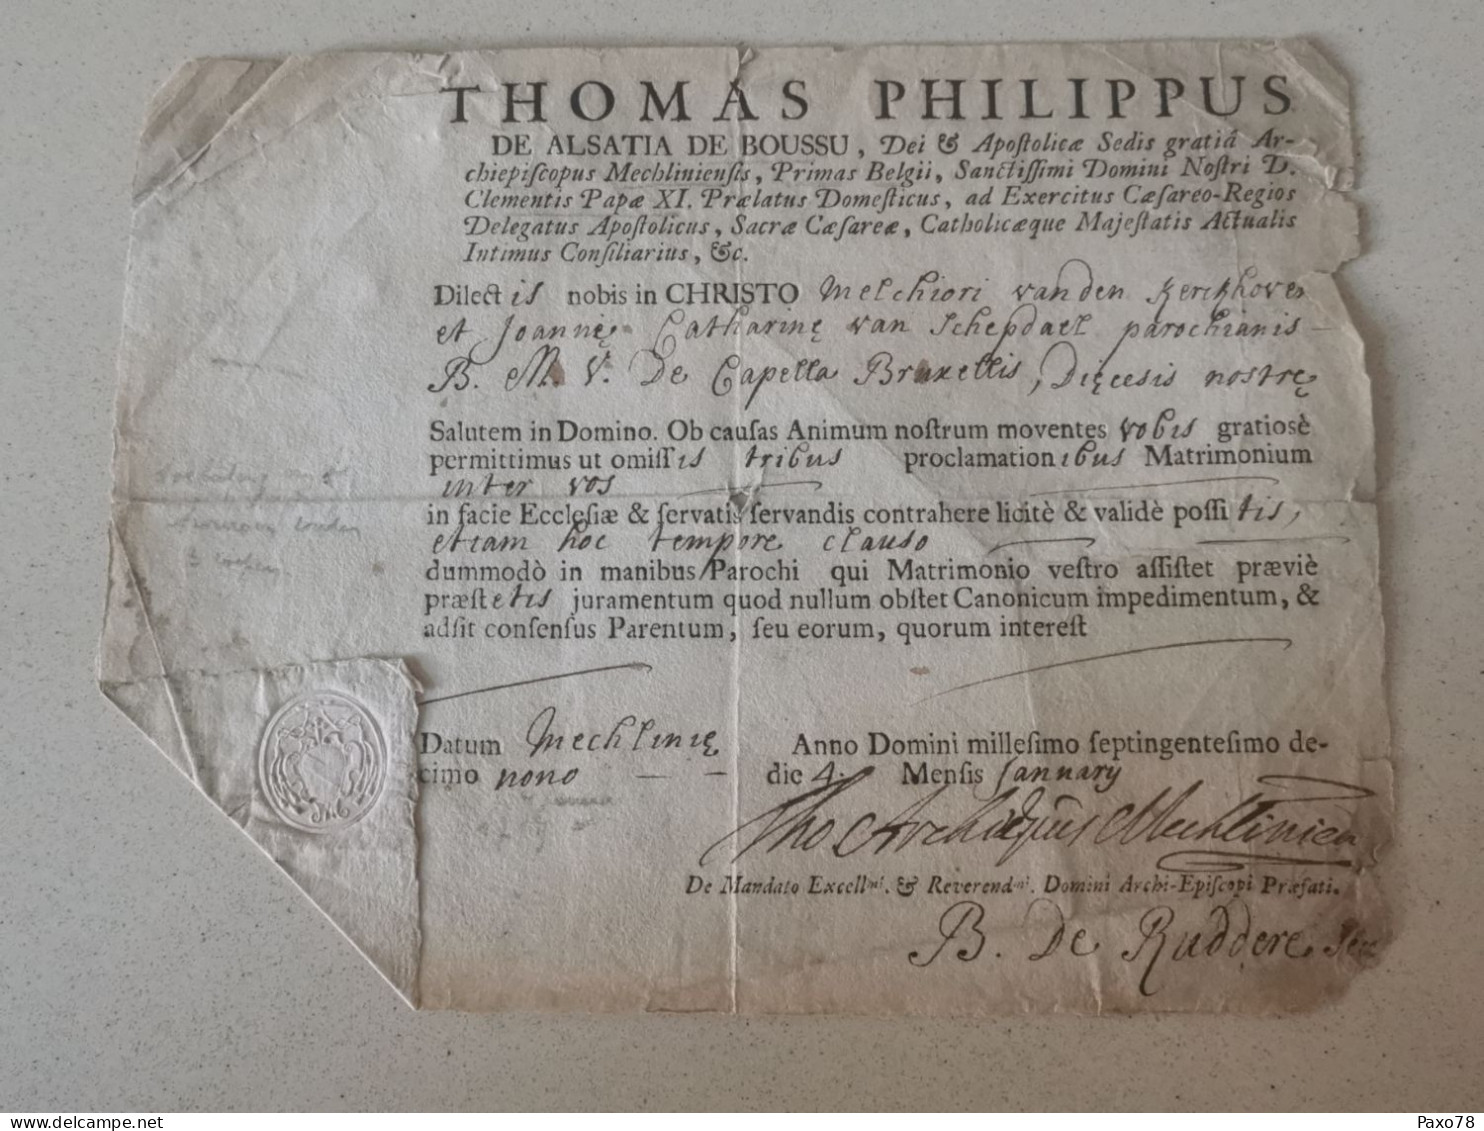 THOMAS PHILIPPUS
DE ALSATIA DE BOUSSU, Dei & Apoſtolicæ Sedis gratiâ Ar-
chiepiſcopus Mechlinienſis, Primas Belgii, Sanctiſſimi Domini Noſtri D.
Clementis Papæ XI. Prælatus Domeſticus, ad Exercitus Cæſareo-Regios
Delegatus Apoſtolicus, Sacræ Cæſareæ, Catholicæque Majeſtatis Actualis
Intimus Conſiliarius, &c.
Dilectis nobis in CHRISTO Melchiori vanden Kerckhove
et Joannę Catharinę van Schepdael parochianis
B. M. V. De Capella Bruxellis, Dięcesis nostrę
Salutem in Domino. Ob cauſas Animum noſtrum moventes vobis gratiosè
permittimus ut omiſſis tribus proclamationibus Matrimonium
inter vos
in facie Eccleſiæ & ſervatis ſervandis contrahere licitè & validè poſſitis,
etiam hoc tempore clauso
dummodò in manibus Parochi qui Matrimonio veſtro aſſiſtet præviè
præſtetis juramentum quod nullum obſtet Canonicum impedimentum, &
adſit conſenſus Parentum, ſeu eorum, quorum intereſt
Datum Mechlinię Anno Domini milleſimo ſeptingenteſimo de-
cimo nono die 4. Menſis January
Tho Archiepūs Mechlinien
De Mandato Excellmi. & Reverendmi. Domini Archi-Epiſcopi Præfati.
B. De Ruddere Sec
Paxo78